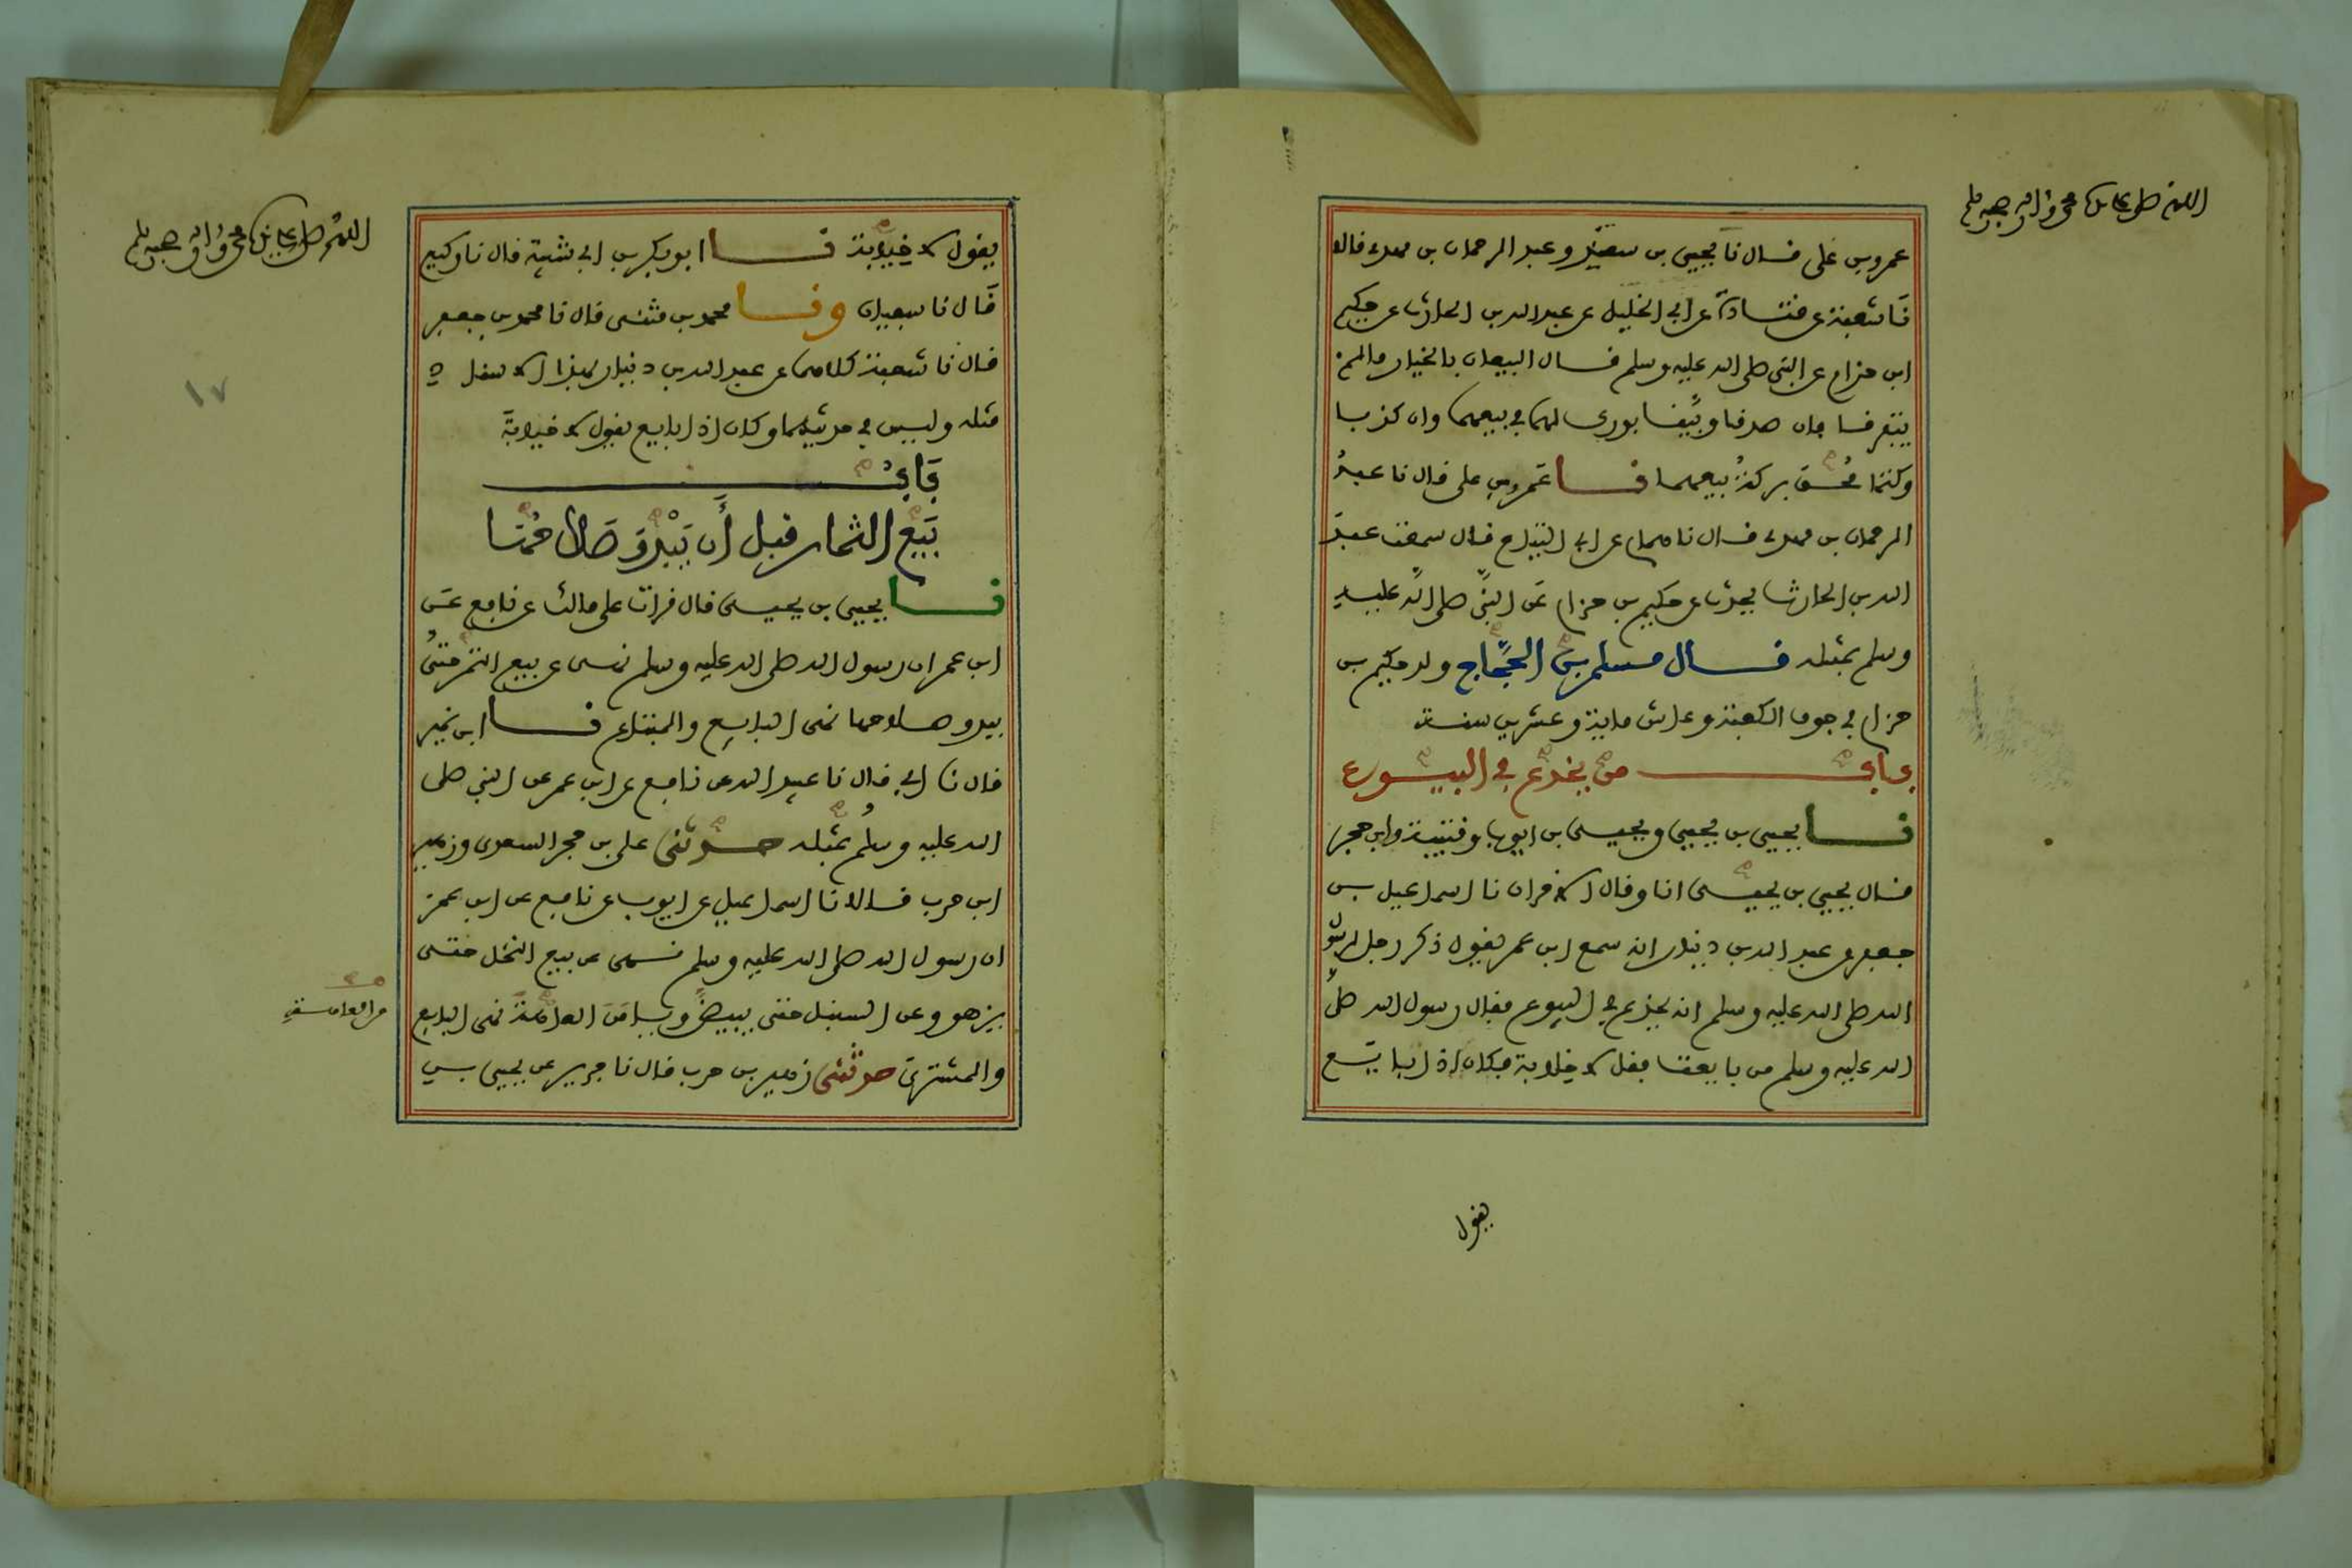 اللهم صل على سيدنا محمد واله وصحبه وسلم
عمرو بن على فال نا يحيى بن سعيد وعبد الرحمان بن مهدى فالا
نا شعبة عن فتادة عن ابى الخليل عن عبد الله بن الحارث عن حكيم
ابن حزام عن النبى صلى الله عليه وسلم فال البيعان بالخيار مالم
يتفرفا فان صدفا وبينا بورك لهما فى بيعهما وان كذبا
وكتما محق بركة بيعهما نا عمرو بن على فال نا عبد
الرحمان بن مهدى فال نا همام عن ابى التياح فال سمعت عبد
الله بن الحارث يحدث عن حكيم بن حزام عن النبى صلى الله عليه
وسلم بمثله فال مسلم بن الحجاج ولد حكيم بن
حزام فى جوف الكعبة وعاش ماية وعشرين سنة
باب من يخدع فى البيوع
نا يحيى بن يحيى ويحيى بن ايوب وفتيبة وابن حجر
فال يحيى بن يحيى انا وفال الاخران نا اسماعيل بن
جعفر عن عبد الله بن دينار انه سمع ابن عمر يفول ذكر رجل لرسول
الله صلى الله عليه وسلم انه يخدع فى البيوع ففال رسول الله صلى
الله عليه وسلم من بايعت ففل لا خلابة فكان اذا بايع
يفول
اللهم صل على سيدنا محمد واله وصحبه وسلم
١٧
يفول لا خيابة نا ابو بكر بن ابى شيبة فال نا وكيع
فال نا سفيان ونا محمد بن مثنى فال نا محمد بن جعفر
فال نا شعبة كلاهما عن عبد الله بن دينار بهذا الاسناد
مثله وليس فى حديثهما وكان اذا بايع يفول لا خيابة
باب
بيع الثمار فبل أن يبدو صلاحها
نا يحيى بن يحيى فال فرات على مالك عن نافع عن
ابن عمر ان رسول الله صلى الله عليه وسلم نهى عن بيع الثمر حتى
يبدو صلاحها نهى البايع والمبتاع نا ابن نمير
فال نا ابى فال نا عبيد الله عن نافع عن ابن عمر عن النبى صلى
الله عليه وسلم بمثله حدثنى على بن حجر السعدى وزهير
ابن حرب فالا نا اسماعيل عن ايوب عن نافع عن ابن عمر
ان رسول الله صلى الله عليه وسلم نهى عن بيع النخل حتى
يزهو وعن السنبل حتى يبيض ويامن العاهة نهى البايع
والمشترى حدثنى زهير بن حرب فال نا جرير عن يحيى بن